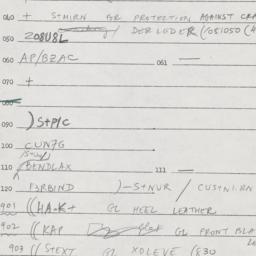 040 + STMIRN GR PROTECTION AGAINST CRA
050 208U8L / DERLUDER (/051050 (A
060 AP/BZAC 061 —
070 +
080
090 )STPIC
100 CUN7G
110 BENDLAX 111 —
120 13RBIND )-STNUR / CUSTNI.RN
901 ((HA-K+ GL HEEL LEATHER
902 ((KAP GL FRONT BLA
903 ((STEXT GL XOLEVE (830